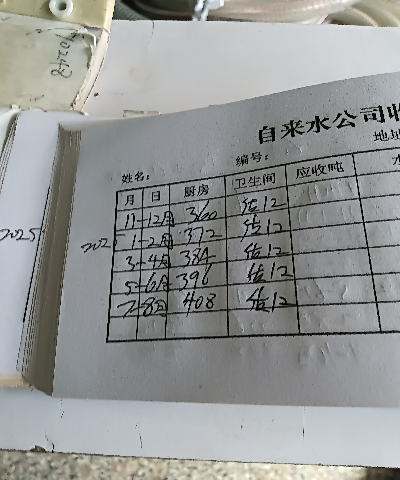 70248
自来水公司收
姓名: 编号: 地址
月 日 厨房 卫生间 应收吨 水
11-12月 360 估12
202 1-2月 372 估12
2025 3-4月 384 估12
5-6月 396 估12
7-8月 408 估12